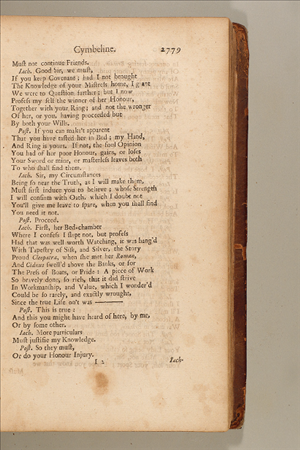 Cymbeline. 2779
Must not continue Friends.
Iach. Good Sir, we must,
If you keep Covenant; had I not brought
The Knowledge of your Mistress home, I grant
We were to Question farther; but I now
Profess my self the winner of her Honour,
Together with your Ring; and not the wronger
Of her, or you, having proceeded but
By both your Wills.
Post. If you can make't apparent
That you have tasted her in Bed; my Hand,
And Ring is yours. If not, the foul Opinion
You had of her pure Honour, gains, or loses
Your Sword or mine, or masterless leaves both
To who shall find them.
Iach. Sir, my Circumstances
Being so near the Truth, as I will make them,
Must first induce you to believe; whose Strength
I will confirm with Oath, which I doubt not
You'll give me leave to spare, when you shall find
You need it not.
Post. Proceed.
Iach. First, her Bed-chamber
Where I confess I slept not, but profess
Had that was well worth Watching, it was hang'd
With Tapestry of Silk, and Silver, the Story
Proud Cleopatra, when she met her Roman,
And Cidnus swell'd above the Banks, or for
The Press of Boats, or Pride: A piece of Work
So bravely done, so rich, that it did strive
In Workmanship, and Value, which I wonder'd
Could be so rarely, and exactly wrought,
Since the true Life on't was ———
Post. This is true:
And this you might have heard of here, by me,
Or by some other.
Iach. More particulars
Must justifie my Knowledge.
Post. So they must,
Or do your Honour Injury.
I 2 Iach.